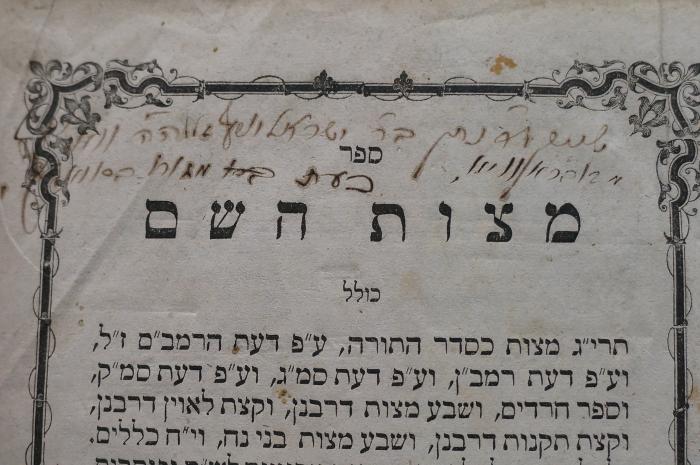 נתן בר ישראל
ספר
כעת
מצות השם
כולל
תרי״ג מצות כסדר התורה, ע״פ דעת הרמב״ם ז״ל,
וע״פ דעת רמב״ן, וע״פ דעת סמ״ג, וע״פ דעת סמ״ק,
וספר חרדים, ושבע מצות דרבנן, וקצת לאוין דרבנן,
וקצת תקנות דרבנן, ושבע מצות בני נח, וי״ח כללים.